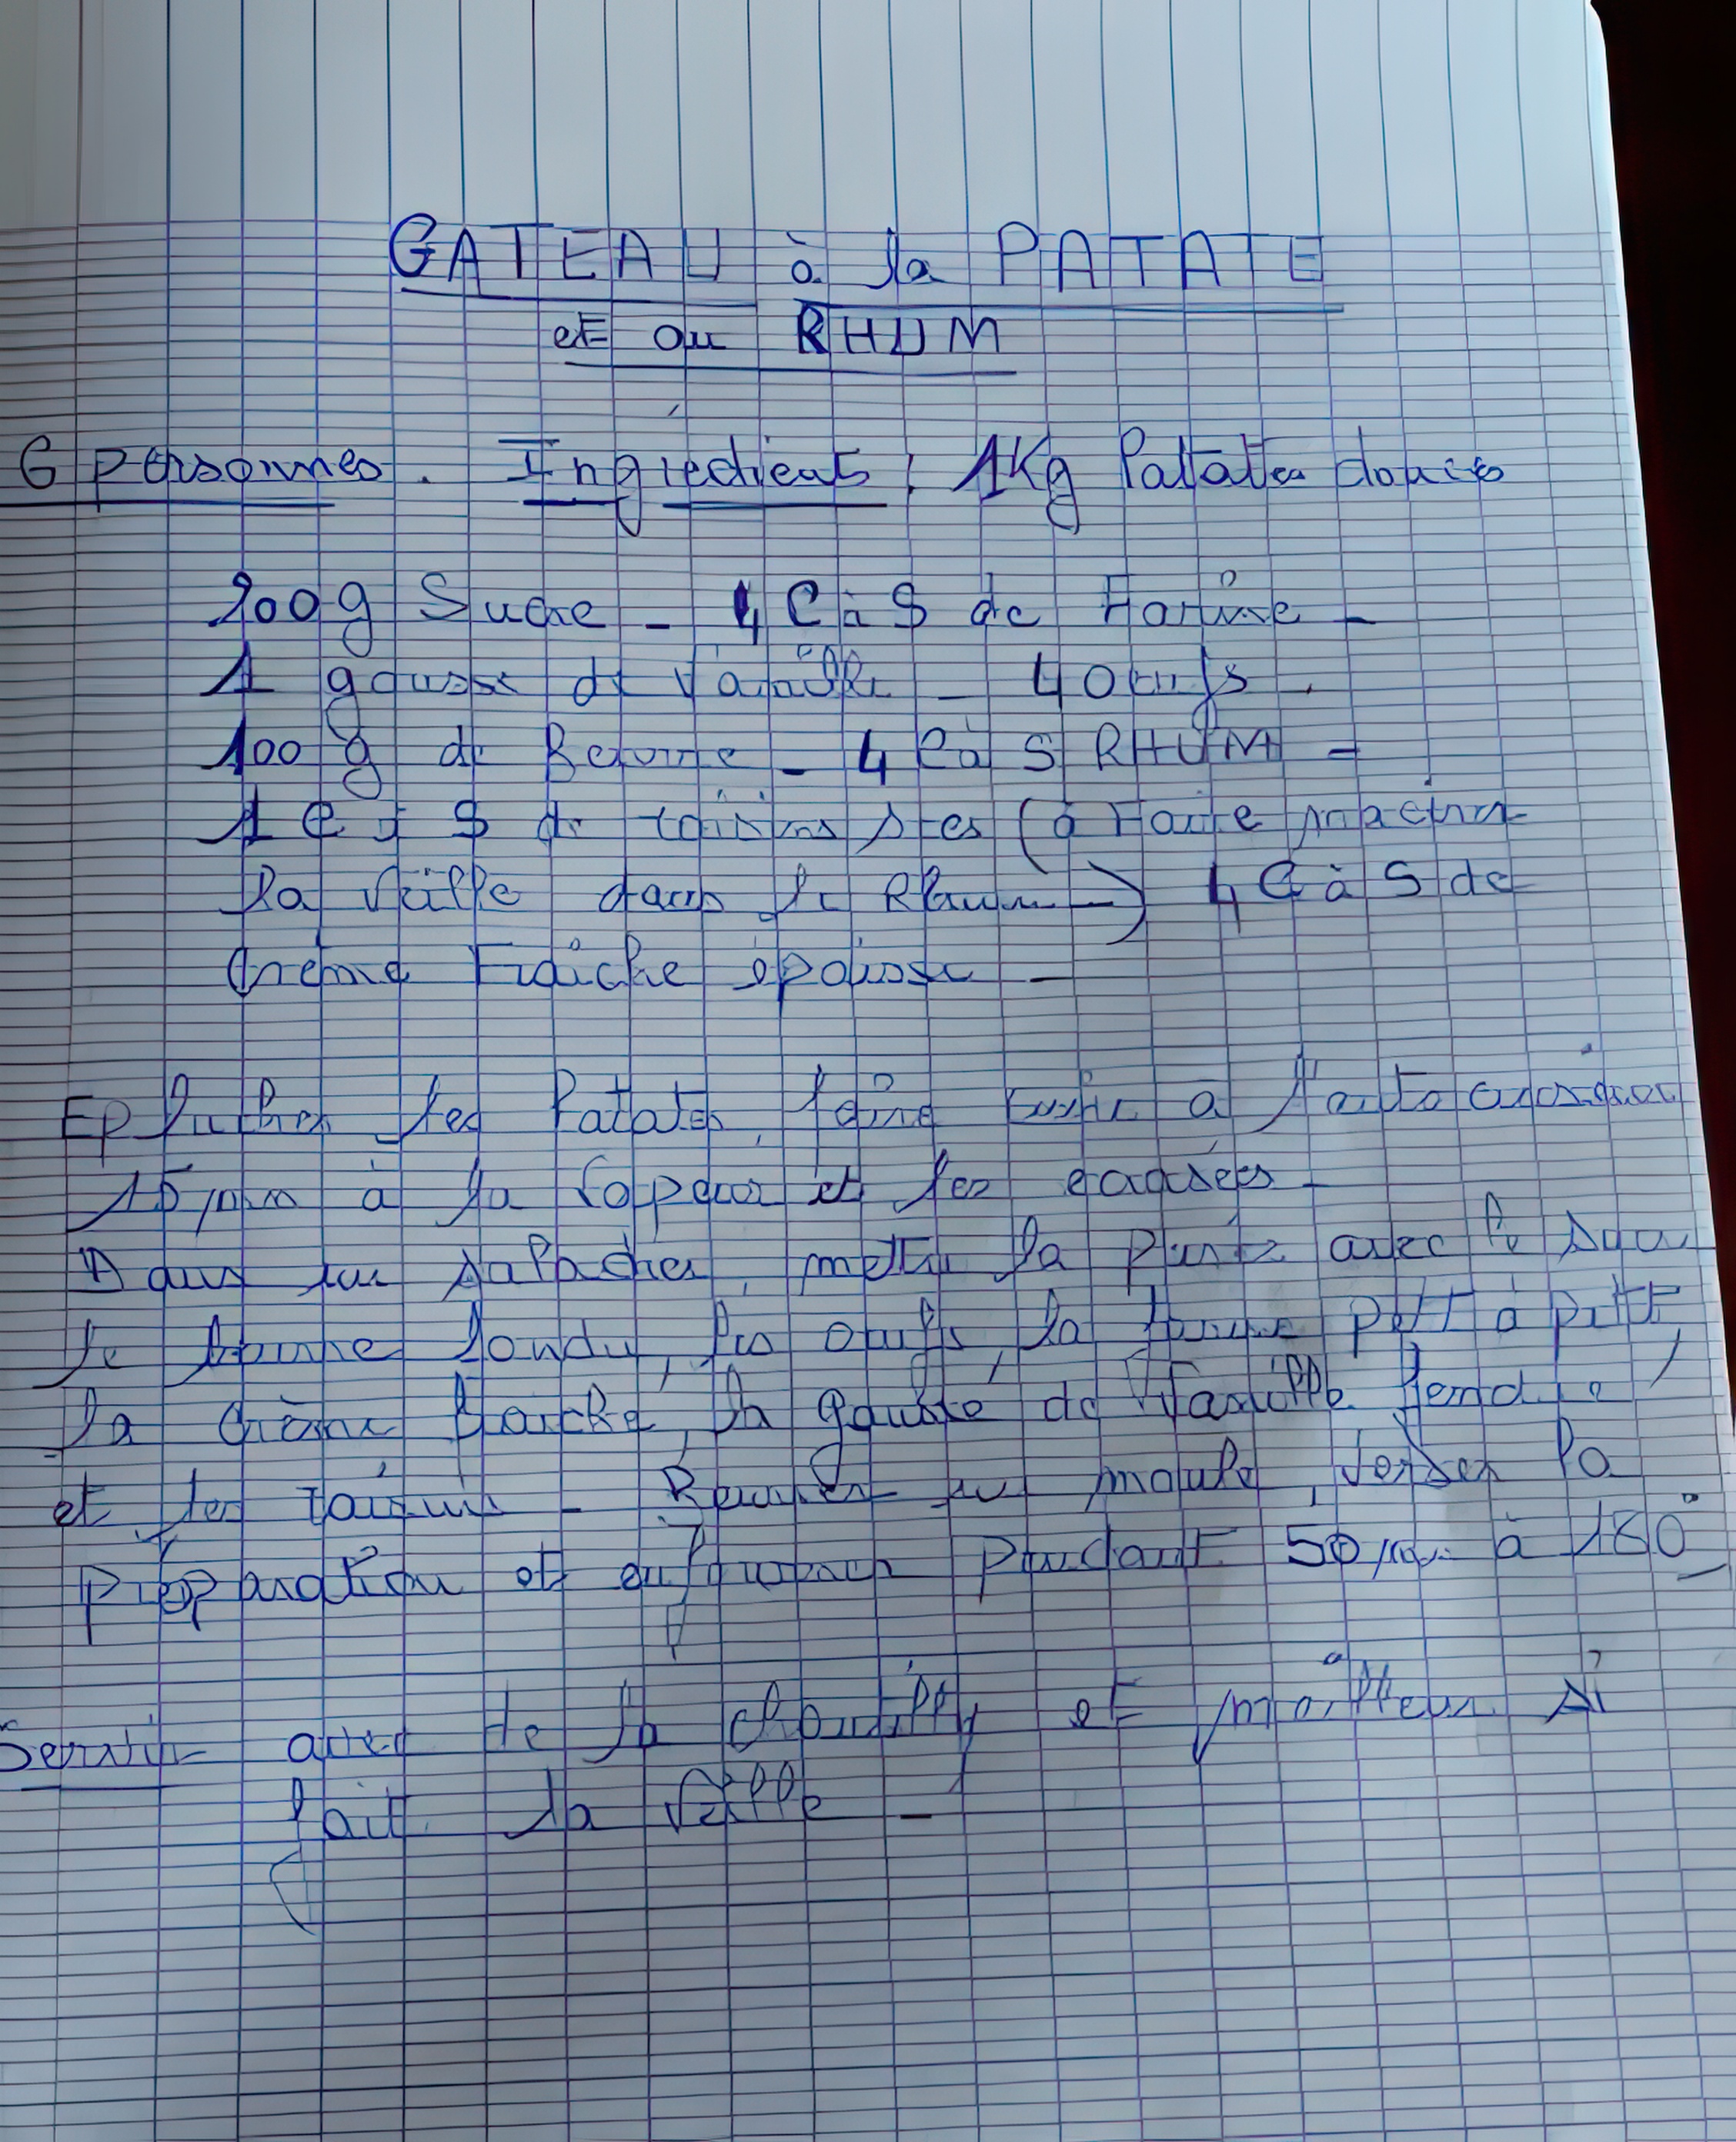 GATEAU à la PATATE
et au RHUM
6 personnes. Ingrédients : 1Kg Patates douces
200g Sucre - 4 C à S de Farine -
1 gousse de Vanille - 4 oeufs.
100 g de Beurre - 4 C à S RHUM -
1 C à S de raisins secs (à Faire macérer
la veille dans le Rhum -) 4 C à S de
Crème Fraîche épaisse -
Eplucher les Patates, faire cuire a l'auto cuiseur
15 mn à la vapeur et les écrasées -
Dans un saladier, mettre la purée avec le sucre
le beurre fondu, les oeufs, la farine petit à petit,
la crème fraîche, la gousse de Vanille fendue,
et les raisins - Beurrer un moule, verser la
préparation et enfourner pendant 50 mn à 180°
Servir avec de la chantilly et meilleur si
fait la veille -